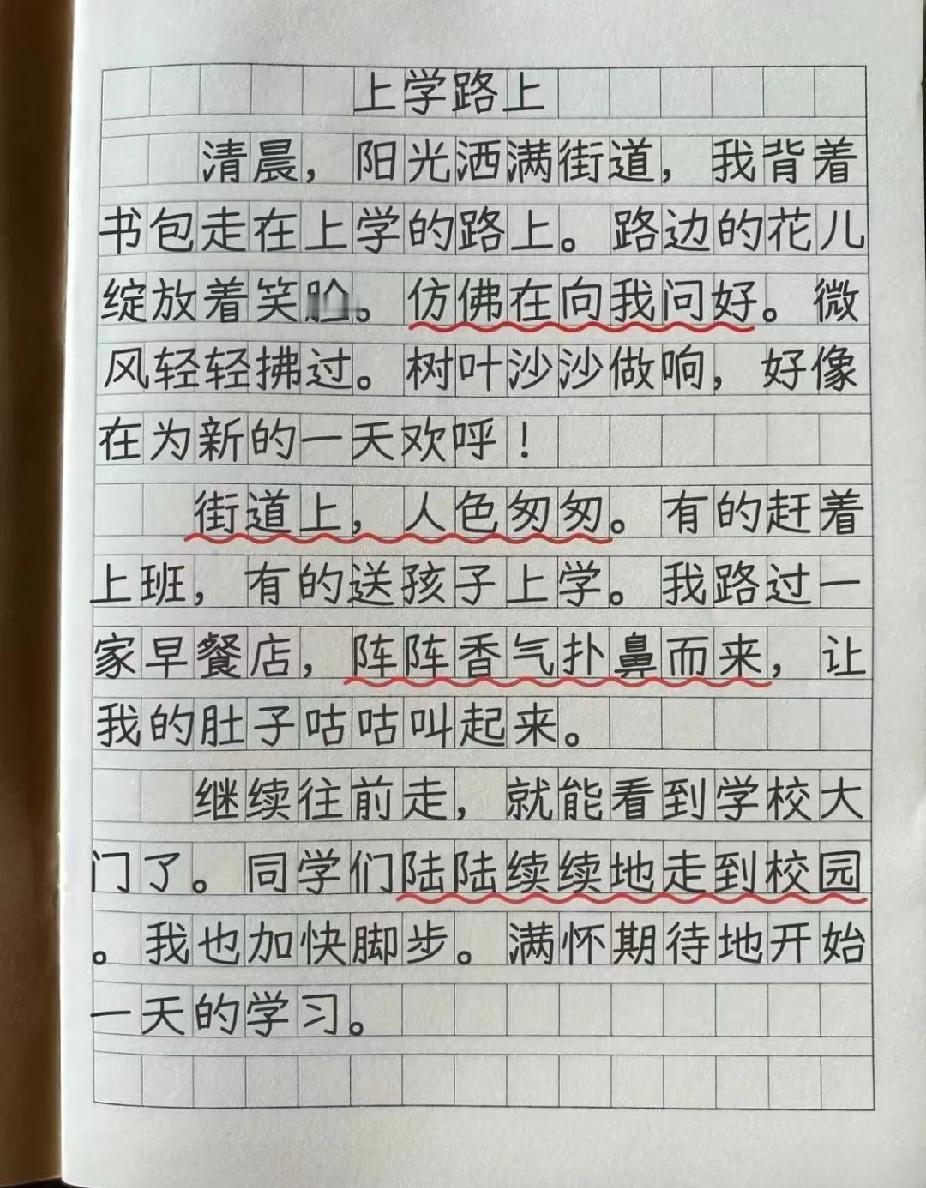 上学路上
清晨，阳光洒满街道，我背着
书包走在上学的路上。路边的花儿
绽放着笑脸。仿佛在向我问好。微
风轻轻拂过。树叶沙沙做响，好像
在为新的一天欢呼！
街道上，人色匆匆。有的赶着
上班，有的送孩子上学。我路过一
家早餐店，阵阵香气扑鼻而来，让
我的肚子咕咕叫起来。
继续往前走，就能看到学校大
门了。同学们陆陆续续地走到校园
。我也加快脚步。满怀期待地开始
一天的学习。